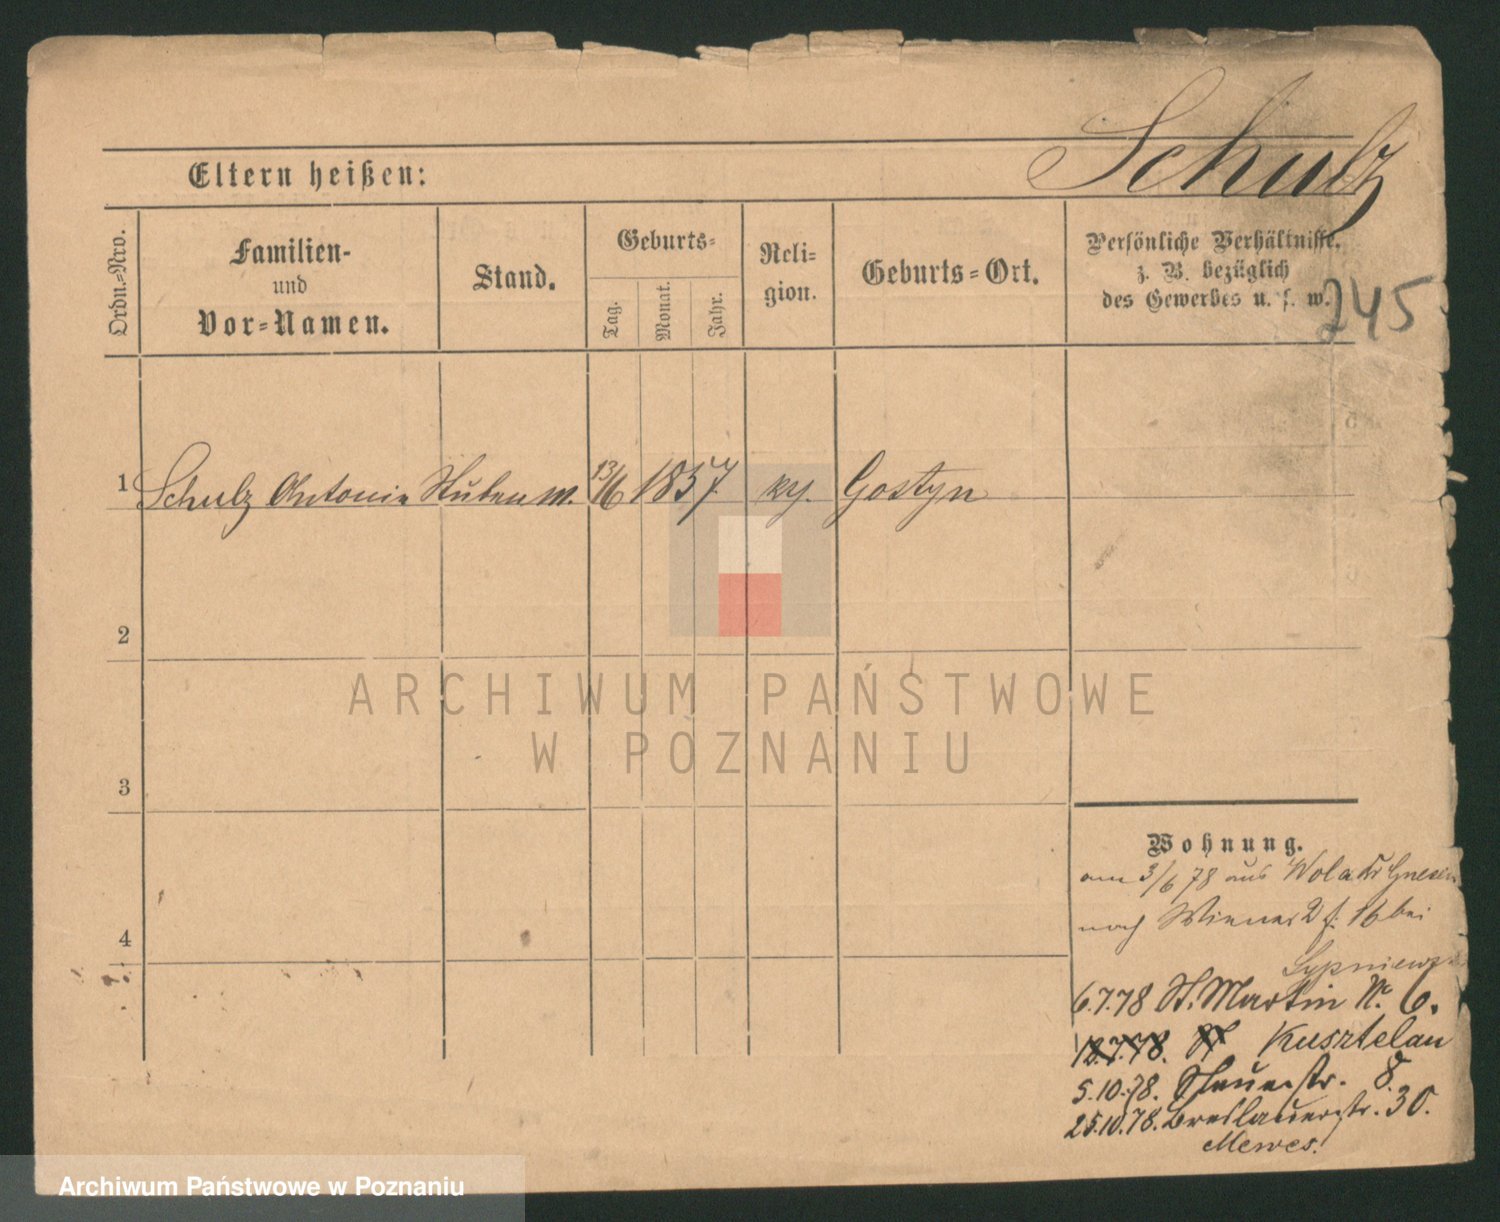 Schulz
Eltern heißen:
Ordn.=Nro.
Familien-
und
Vor=Namen.
Stand.
Geburts=
Tag.
Monat.
Jahr.
Reli=
gion.
Geburts=Ort.
Persönliche Verhältnisse,
z. B. bezüglich
des Gewerbes u. s. w.
245
1 Schulz Antonie Stubenm. 13/6 1857. Gostyn
2
ARCHIWUM PAŃSTWOWE
W POZNANIU
3
4
Wohnung.
am 3/6 78 aus Wola Kr Gnesen
nach 16 bei
6.7.78 St. Martin N. 6.
18.7.78. St Kusztelan
5.10.78. 8.
25.10.78. Breslauerstr. 30.
Mewes.
Archiwum Państwowe w Poznaniu